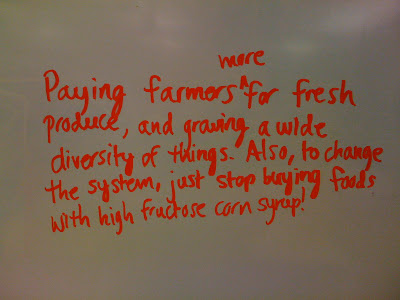 more
Paying farmers ^ for fresh
produce, and growing a wide
diversity of things. Also, to change
the system, just stop buying foods
with high fructose corn syrup!